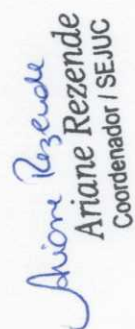 Ariane Rezende
Ariane Rezende
Coordenador / SEJUC